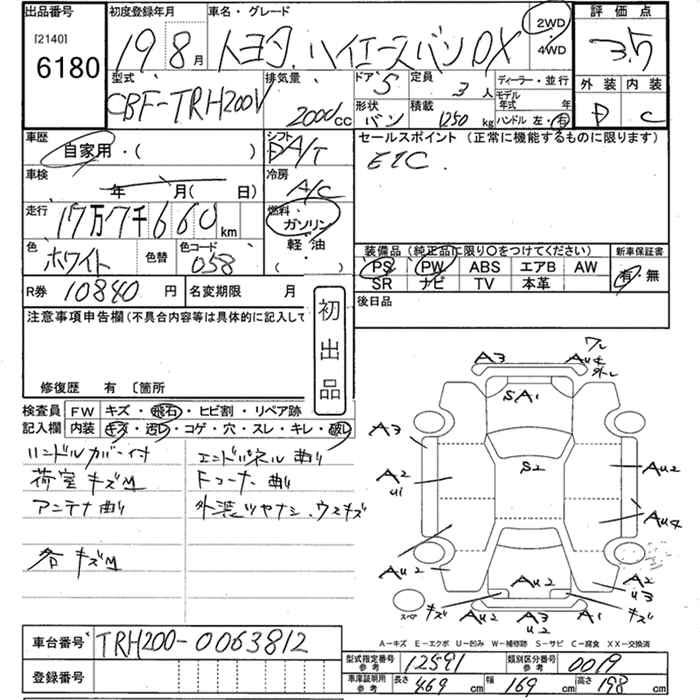 出品番号 初度登録年月 車名・グレード 評価点
[2140] 6180 19 8月 トヨタ ハイエースバン DX 2WD・4WD 3.5
型式 排気量 ドア 5 定員 3人 ディーラー・並行 外装 内装
CBF-TRH200V 2000cc 形状 バン 積載 1250kg モデル年式 年 D C
ハンドル 左・右
車歴 シフト セールスポイント (正常に機能するものに限ります)
自家用・( ) A/T ETC
車検 冷房
年 月( 日) A/C
走行 燃料
17万7千660km ガソリン
色 色替 色コード 軽油
ホワイト 058 ( )
装備品 (純正品に限り○をつけてください) 新車保証書
PS PW ABS エアB AW 有・無
SR ナビ TV 本革
R券 10840円 名変期限 月 後日品
注意事項申告欄(不具合内容等は具体的に記入して
初出品
修復歴 有 〔箇所
検査員記入欄 FW キズ・飛石・ヒビ割・リペア跡
内装 キズ・汚レ・コゲ・穴・スレ・キレ・破レ
ハンドルカバー付 エンドパネル曲り
荷室キズM Fコーナー曲り
アンテナ曲り 外装ツヤナシ、ウスキズ
各キズM
A3 AU4 ワレ
外し
SA1
A3
S2
A2 U1 AU2
AU4
AU2 AU2
AU2 A2 U3
スペア キズ AU2 A3 U2 A1 キズ
A-キズ E-エクボ U-凹み W-補修跡 S-サビ C-腐食 XX-交換済
車台番号 TRH200-0063812
型式指定番号 参考 12591 類別区分番号 参考 0019
登録番号
車庫証明用 参考 長さ 469cm 幅 169cm 高さ 198cm